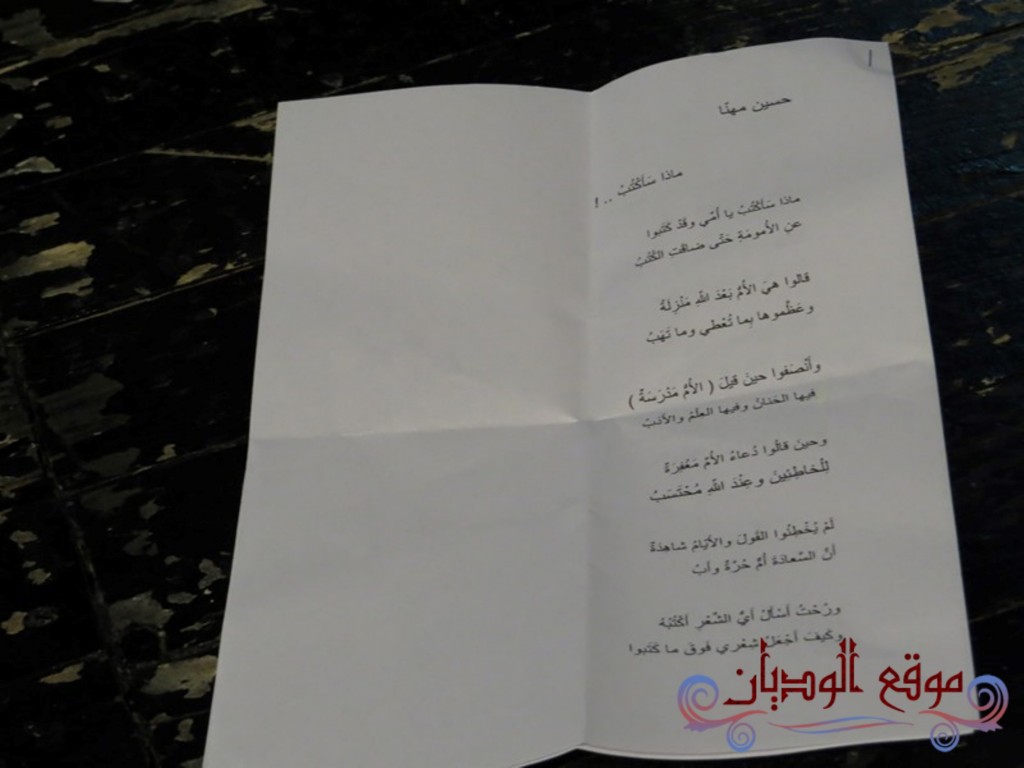 حسين مهنّا
ماذا سَأَكْتُبُ .. !
ماذا سَأَكْتُبُ يا أُمّي وقَدْ كَتَبوا
عنِ الأُمومَةِ حَتّى ضاقَتِ الكُتُبُ
قالوا هيَ الأُمُّ بَعْدَ اللهِ مَنْزِلَةً
وعَظَّموها بِما تُعْطي وما تَهَبُ
وأَنْصَفوا حينَ قيلَ ( الأُمُّ مَدْرَسَةٌ )
فيها الحَنانُ وفيها العِلْمُ والأَدَبُ
وحينَ قالوا دُعاءُ الأُمِّ مَغْفِرَةٌ
لِلْخاطِئِينَ وعِنْدَ اللهِ مُحْتَسَبُ
لَمْ يُخْطِئُوا القَولَ والأَيّامُ شاهِدَةٌ
أَنَّ السَّعادَةَ أُمٌّ حُرَّةٌ وأَبُ
ورُحْتُ أَسْأَلُ أَيَّ الشِّعْرِ أَكْتُبُهُ
وكَيفَ أَجْعَلُ شِعْري فَوقَ ما كَتَبوا
موقع الوديان